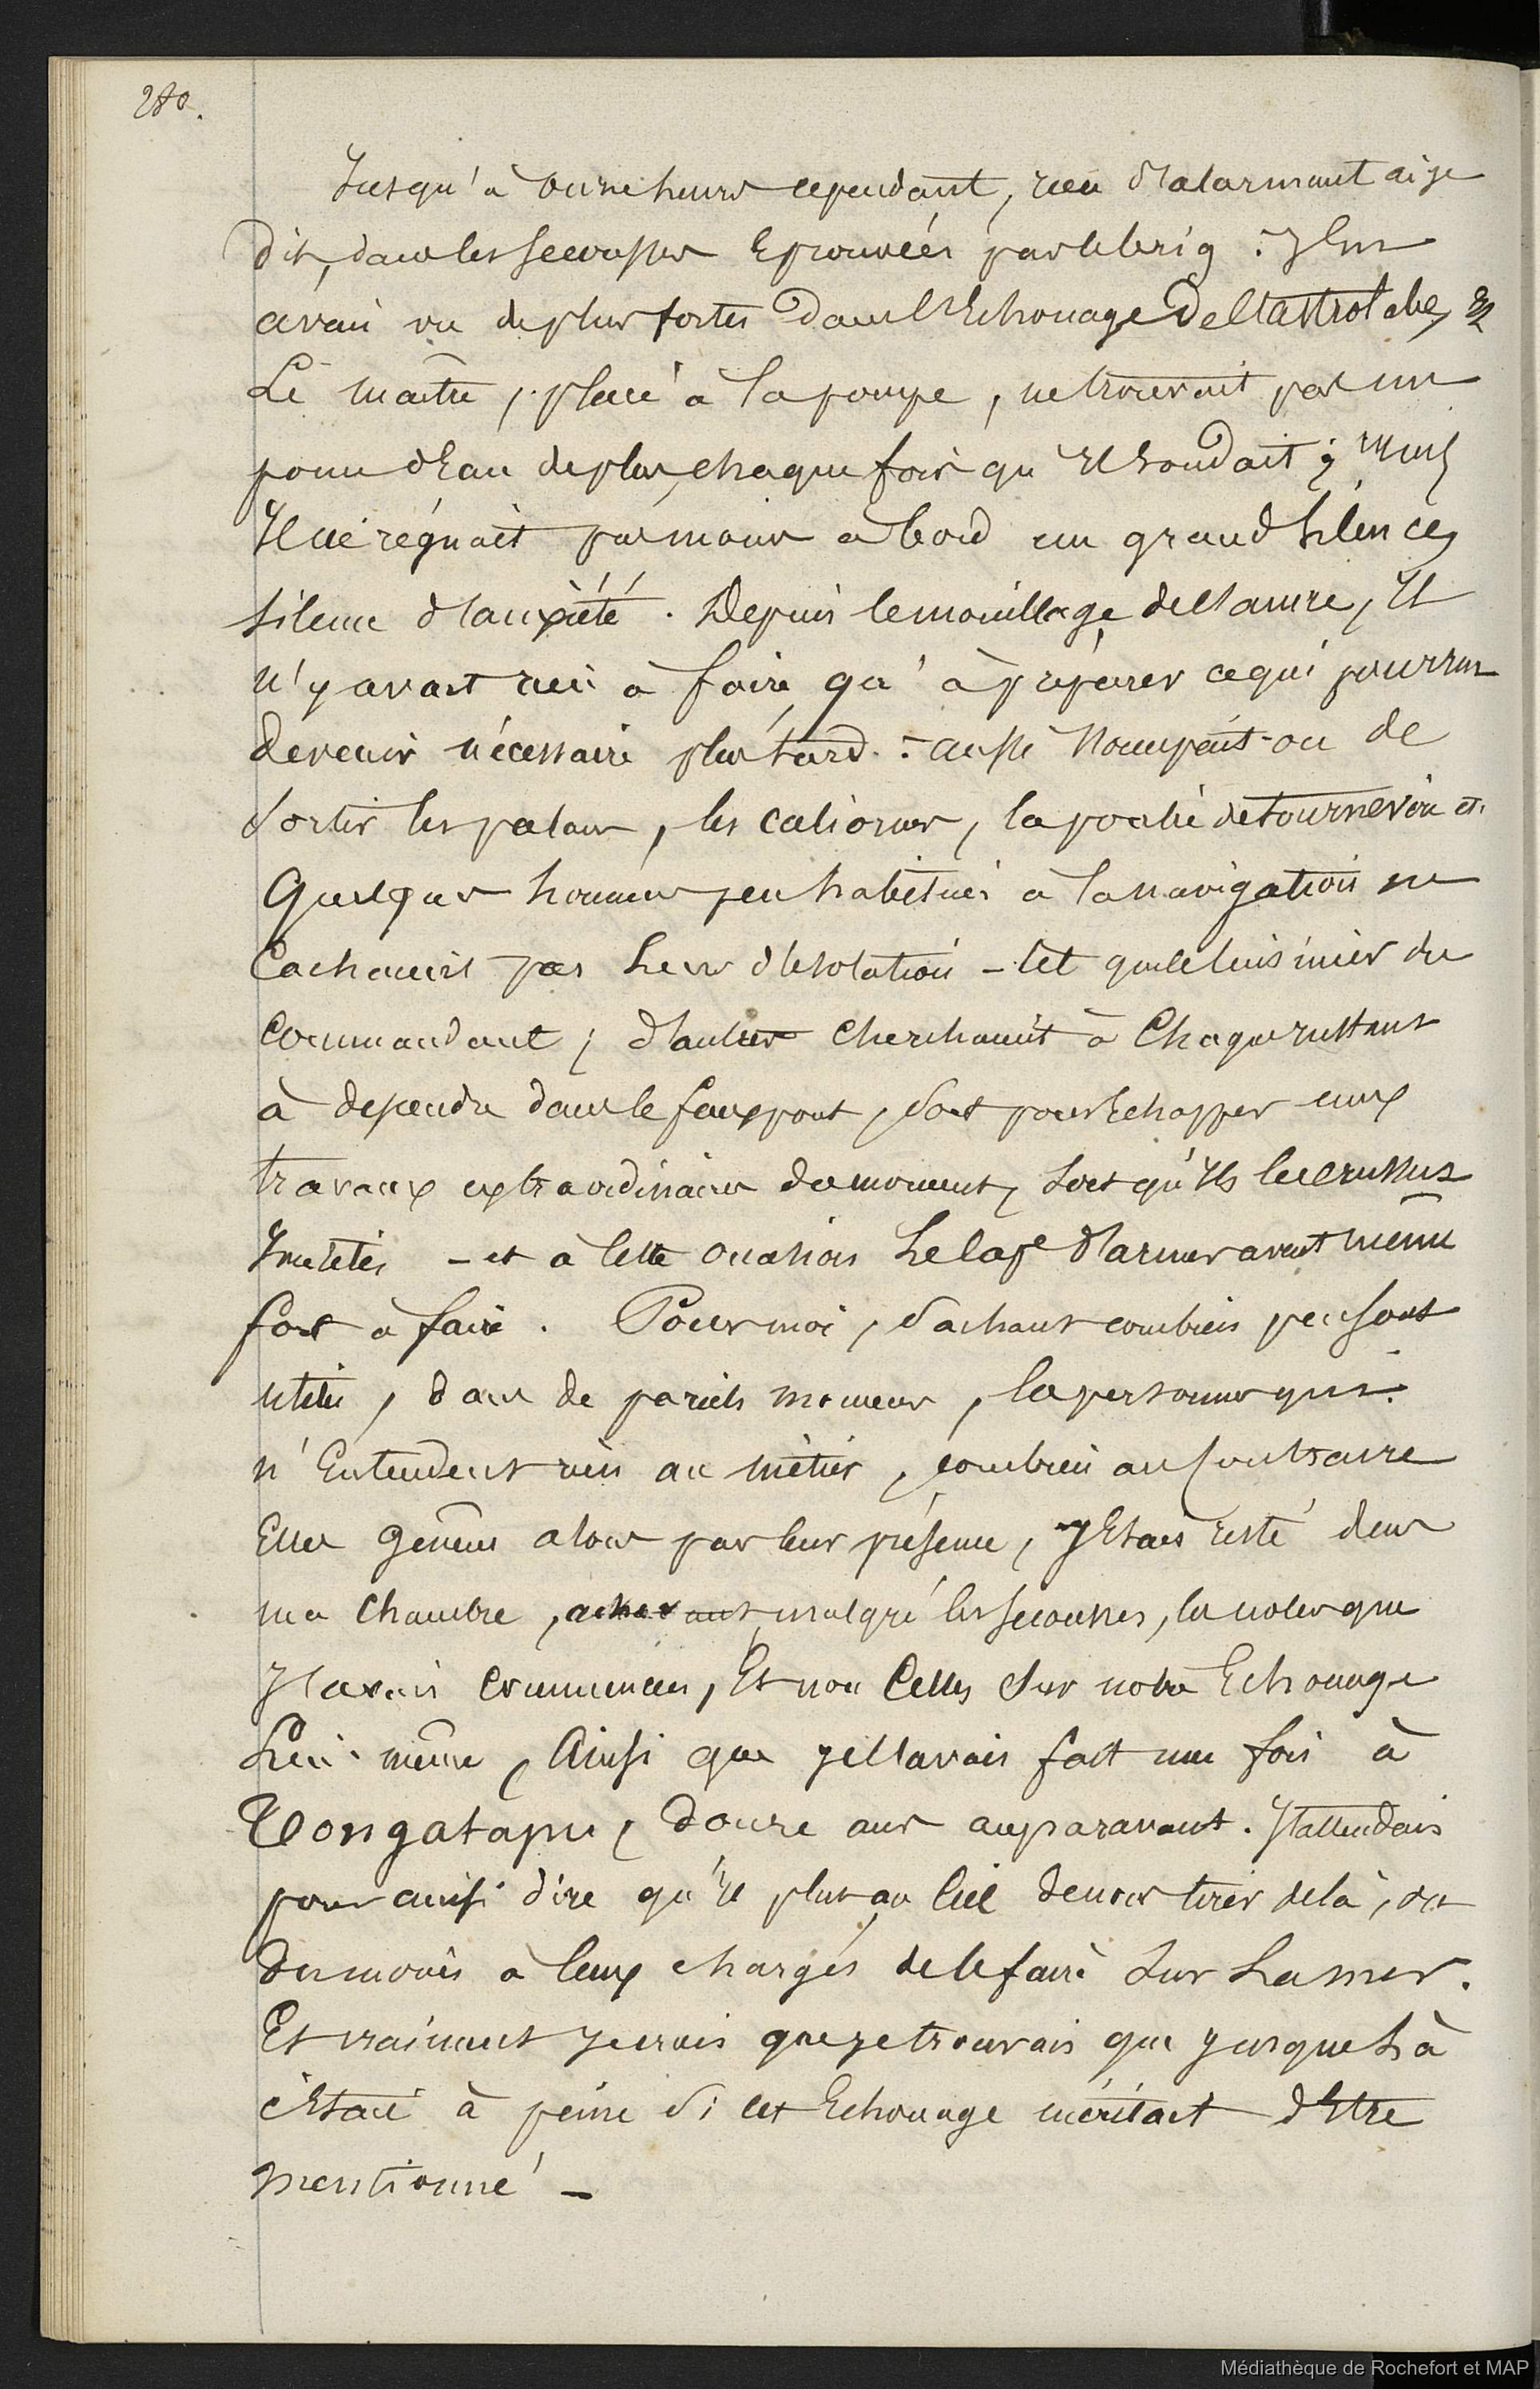 280.
Jusqu'à onze heures cependant, rien d'alarmant ai-je
dit, dans les secousses éprouvées par le brig : j'en
avais vu de plus fortes dans l'échouage de l'astrolabe, &
Le maître, placé à la pompe, ne trouvait pas un
pouce d'eau de plus, chaque fois qu'il sondait ; mais
Il ne régnait pas moins à bord un grand silence,
silence d'anxiété. Depuis le mouillage de l'ancre, il
n'y avait rien à faire, qu'à préparer ce qui pourrait
devenir nécessaire plus tard : aussi s'occupait-on de
sortir les palans, les caliornes, la poulie de tournevire etc
Quelques hommes peu habitués à la navigation ne
cachaient pas leur désolation - tel que le cuisinier du
commandant ; d'autres cherchaient à chaque instant
à descendre dans le faux pont, soit pour échapper aux
travaux extraordinaires du moment, soit qu'ils le crussent
Inutiles - et à cette occasion le cap.e d'armes avait même
fort à faire. Pour moi, sachant combien peu sont
utiles, dans de pareils momens, les personnes qui
n'entendent rien au métier, combien au contraire
elles gênent alors par leur présence, j'étais resté dans
ma chambre, achevant, malgré les secousses, les notes que
j'avais commencées, et non celles sur notre échouage
lui-même, ainsi que je l'avais fait une fois à
Tongatapu, douze ans auparavant. J'attendais
pour ainsi dire qu'il plut au ciel de nous tirer de là, ou
du moins à ceux chargés de le faire sur la mer.
Et vraiment je crois que je trouvais que jusque là
c'était à peine si cet échouage méritait d'être
mentionné -
Médiathèque de Rochefort et MAP